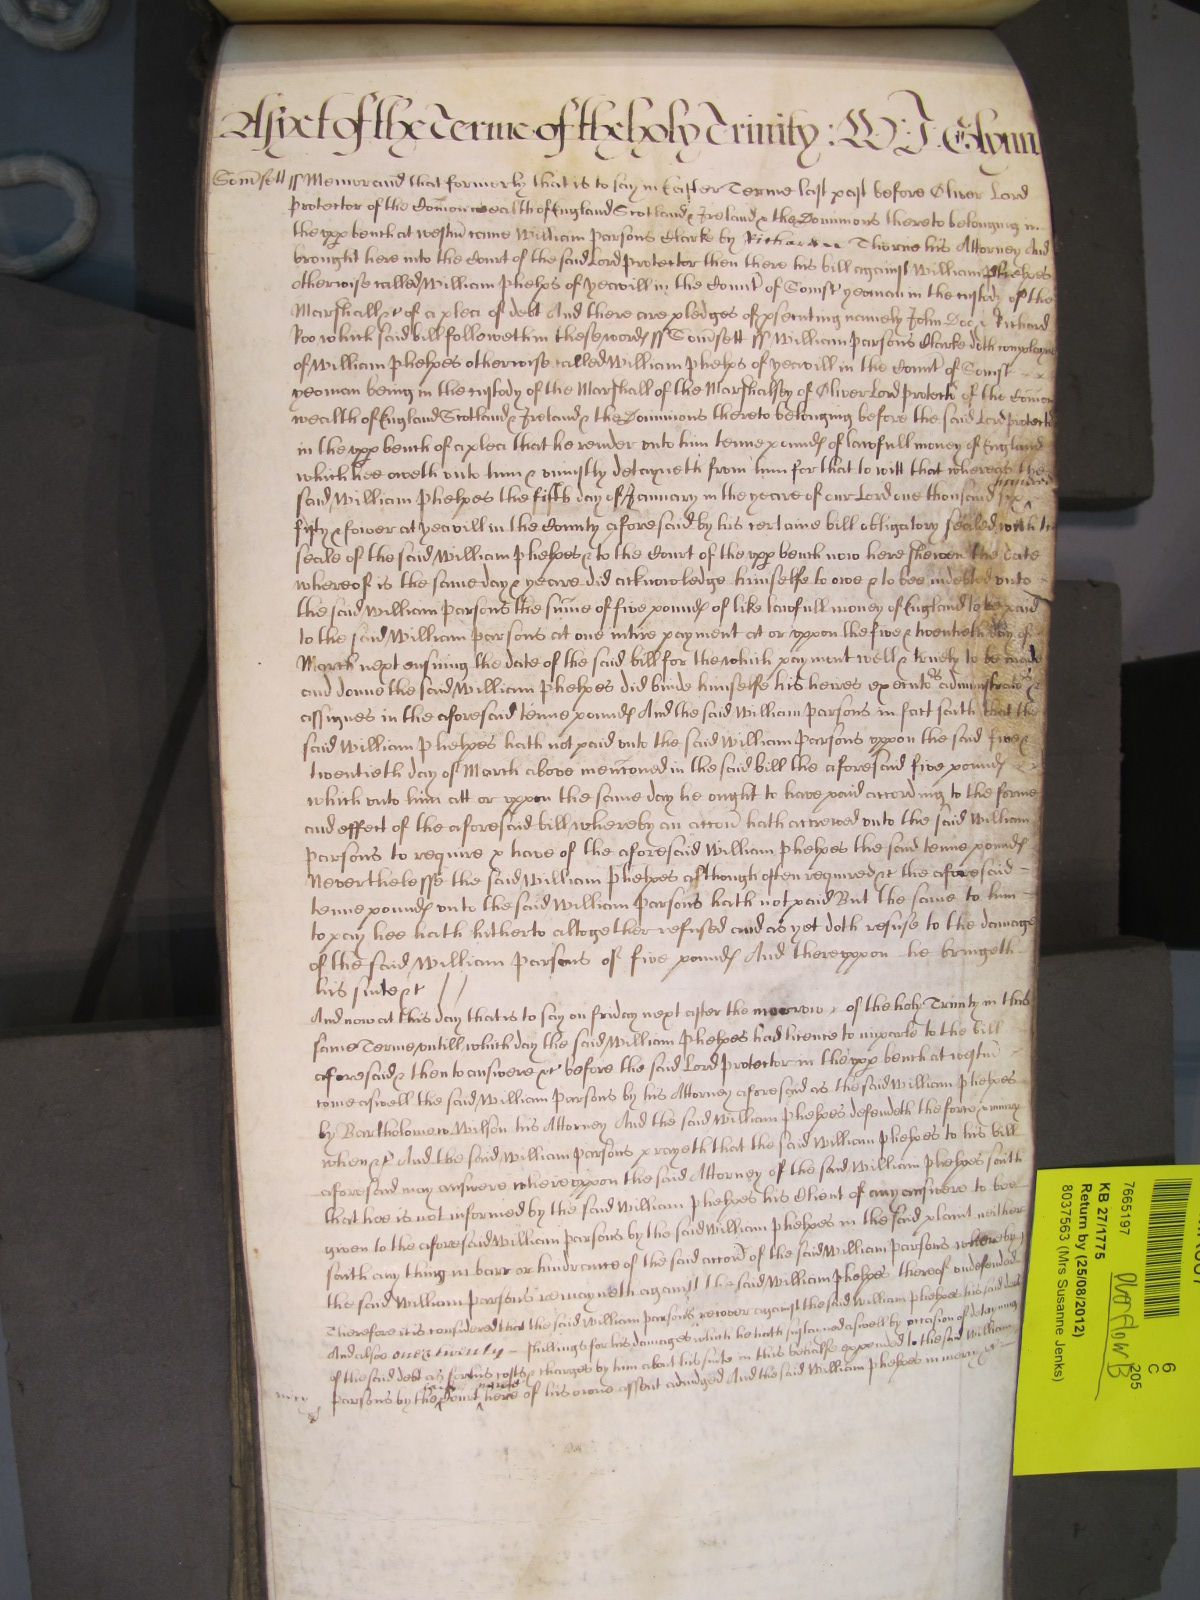 As yet of the Terme of the holy Trinity : W J Glynn
Som̃sett ss Memorand that formerly that is to say in Easter Terme last past before Oliver Lord
Protector of the Com̃onwealth of England Scotland & Ireland & the Dominions thereto belonging in
the upp bench at westm̃ came William Parsons Clarke by Richard Thorne his Attorney And
brought here into the Court of the said Lord Protector then there his bill against William Phelpes
otherwise called William Phelps of yeavill in the County of Somst yeoman in the custody of the
Marshall &c of a plea of debt And there are pledges of psecuting namely John Doe & Richard
Roo which said bill followeth in these words ss Som̃sett ss William Parsons Clarke doth complayne
of William Phelpes otherwise called William Phelps of yeavill in the County of Somst
yeoman being in the custody of the Marshall of the Marshalsey of Oliver Lord Protector of the Com̃on
wealth of England Scotland & Ireland & the Dominions thereto belonging before the said Lord Protector
in the upp bench of a plea that he render unto him tenne pounds of lawfull money of England
which hee oweth unto him & uniustly detayneth from him for that to witt that whereas the
said William Phelpes the fifth day of January in the yeare of our Lord one thousand six hundred
fifty & fower at yeavill in the County aforesaid by his certaine bill obligatory sealed with the
seale of the said William Phelpes & to the Court of the upp bench now here shewen the date
whereof is the same day & yeare did acknowledge himselfe to owe & to bee indebted unto
the said William Parsons the sum̃e of five pounds of like lawfull money of England to be paid
to the said William Parsons at one intire payment at or uppon the five & twentieth day of
March next ensuing the date of the said bill for the which payment well & truely to be made
and donne the said William Phelpes did binde himselfe his heires executors administrators &
assignes in the aforesaid tenne pounds And the said William Parsons in fact saith that the
said William Phelpes hath not paid unto the said William Parsons uppon the said five &
twentieth day of March above menc̃oned in the said bill the aforesaid five pounds
which unto him att or uppon the same day he ought to have paid according to the forme
and effect of the aforesaid bill whereby an acc̃on hath accrewed unto the said William
Parsons to require & have of the aforesaid William Phelpes the said tenne pounds
Neverthelesse the said William Phelpes although often required &c the aforesaid
tenne pounds unto the said William Parsons hath not paid But the same to him
to pay hee hath hitherto altogether refused and as yet doth refuse to the damage
of the said William Parsons of five pounds And thereuppon he bringeth
his suite &c
And now at this day that is to say on friday next after the morrow of the holy Trinity in this
same Terme untill which day the said William Phelpes had licence to imparle to the bill
aforesaid & then to answere &c before the said Lord Protector in the upp bench at westm̃
come aswell the said William Parsons by his Attorney aforesaid as the said William Phelpes
by Bartholomew Wilson his Attorney And the said William Phelpes defendeth the force & iniury
when &c And the said William Parsons prayeth that the said William Phelpes to his bill
aforesaid may answere whereuppon the said Attorney of the said William Phelpes saith
that hee is not informed by the said William Phelpes his Client of any answere to bee
given to the aforesaid William Parsons by the said William Phelpes in the said plaint neither
saith any thing in barr or hindrance of the said acc̃on of the said William Parsons whereby
the said William Parsons remayneth against the said William Phelpes thereof undefended
Therefore it is considered that the said William Parsons recover against the said William Phelpes his said debt
And also one & twenty shillings for his damages which he hath susteyned aswell by occasion of detayning
of the said debt as for his costs & charges by him about his suite in this behalfe expended to the said William
Parsons by the said Court nowe here of his owne assent adiudged And the said William Phelpes in mercy &c
mercy
7665197
KB 27/1775
Return by (25/08/2012)
8037563 (Mrs Susanne Jenks)
Overflow B
6
C
205